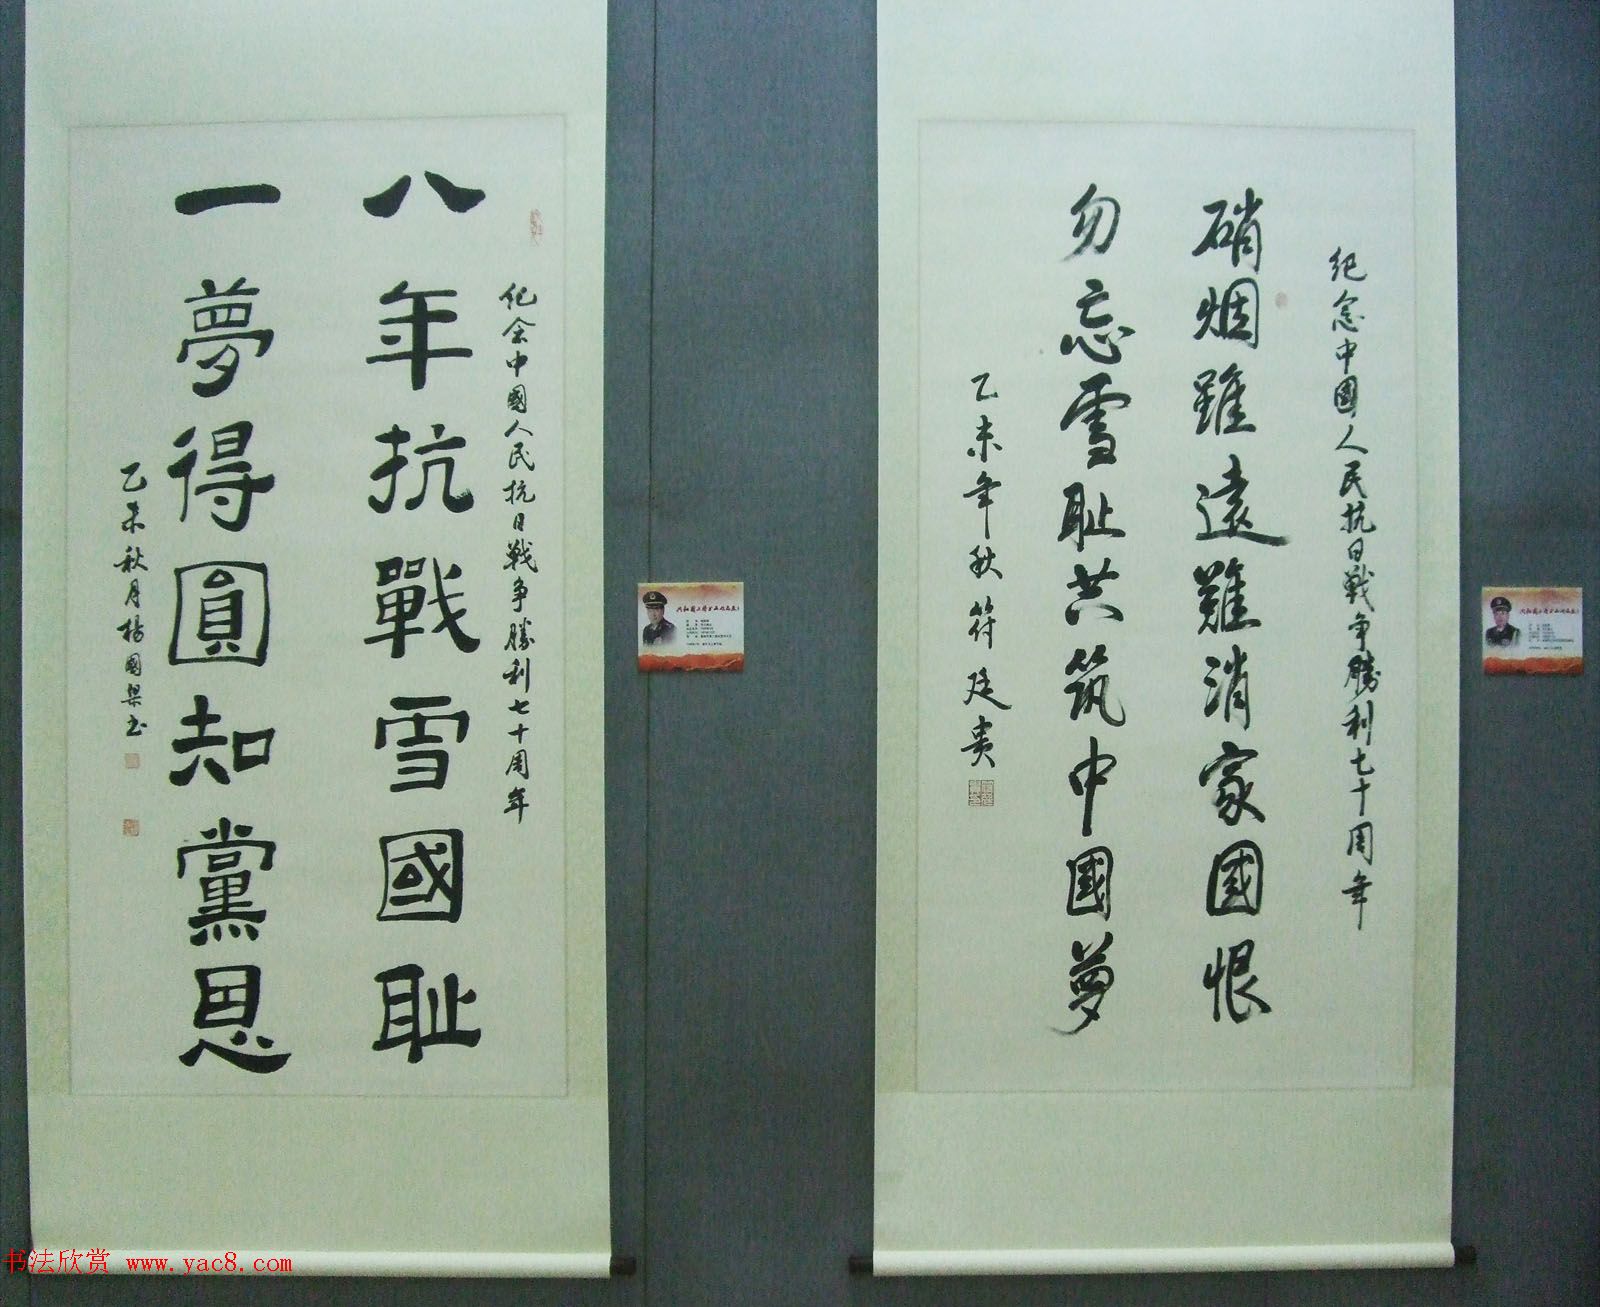 紀念中國人民抗日戰争勝利七十周年
硝烟雖遠難消家國恨
勿忘雪耻共筑中國夢
乙未年秋符廷贵
紀念中國人民抗日戰争勝利七十周年
八年抗戰雪國耻
一夢得圓知黨恩
乙未秋月楊國梁书
书法欣赏 www.yac8.com